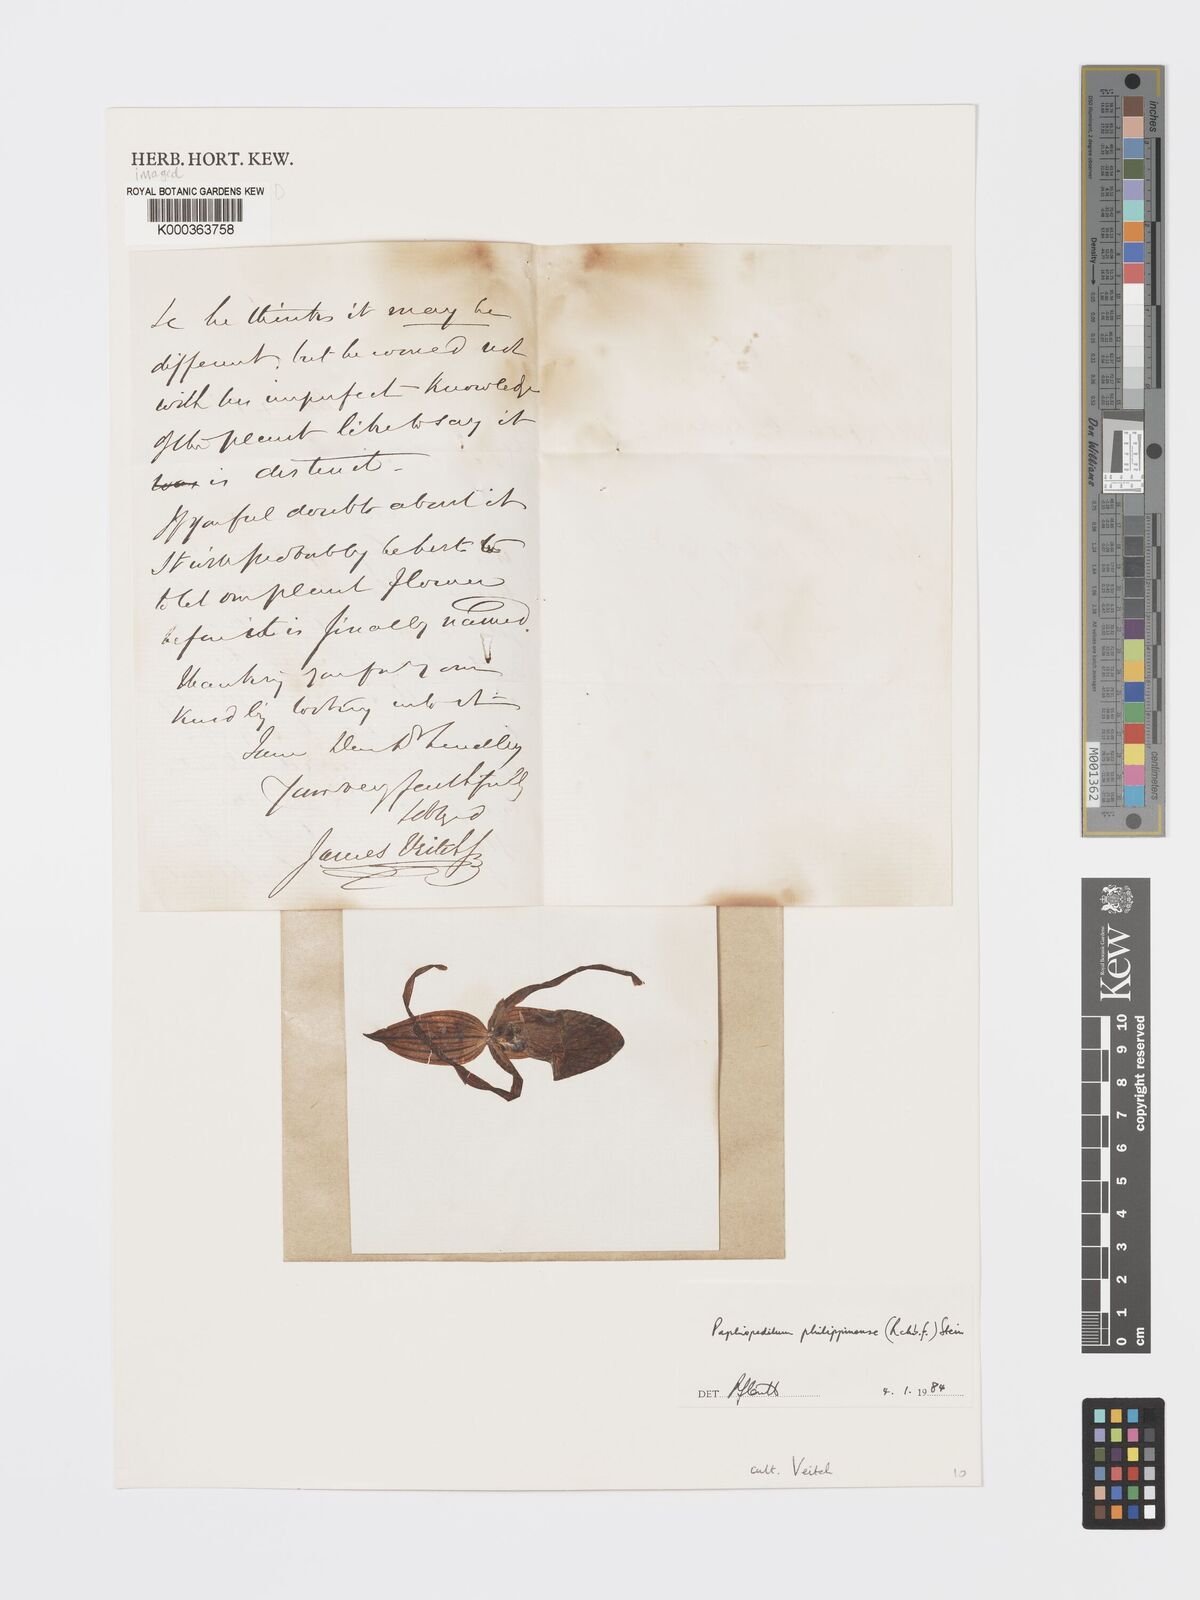 HERB. HORT. KEW.
imaged
ROYAL BOTANIC GARDENS KEW
K000363758
he thinks it may be
different, but he would not
with his imperfect knowledge
of the plant like to say it
was is distinct -
If you feel doubt about it
It will probably be best to
to let our plant flower
before it is finally named.
Thanking you for your
kindly looking into it
I am Dear Dr Lindley
Your very faithfully
& obliged
James Veitch Jr
Paphiopedilum philippinense (Rchb.f.) Stein
DET. 4. 1. 1984
cult. Veitch
10
inches
Density
Don Williams
centimeters
M001362
Royal Botanic Gardens
Kew
0 1 2 3 4 5 6 7 8 9 10
cm
copyright reserved